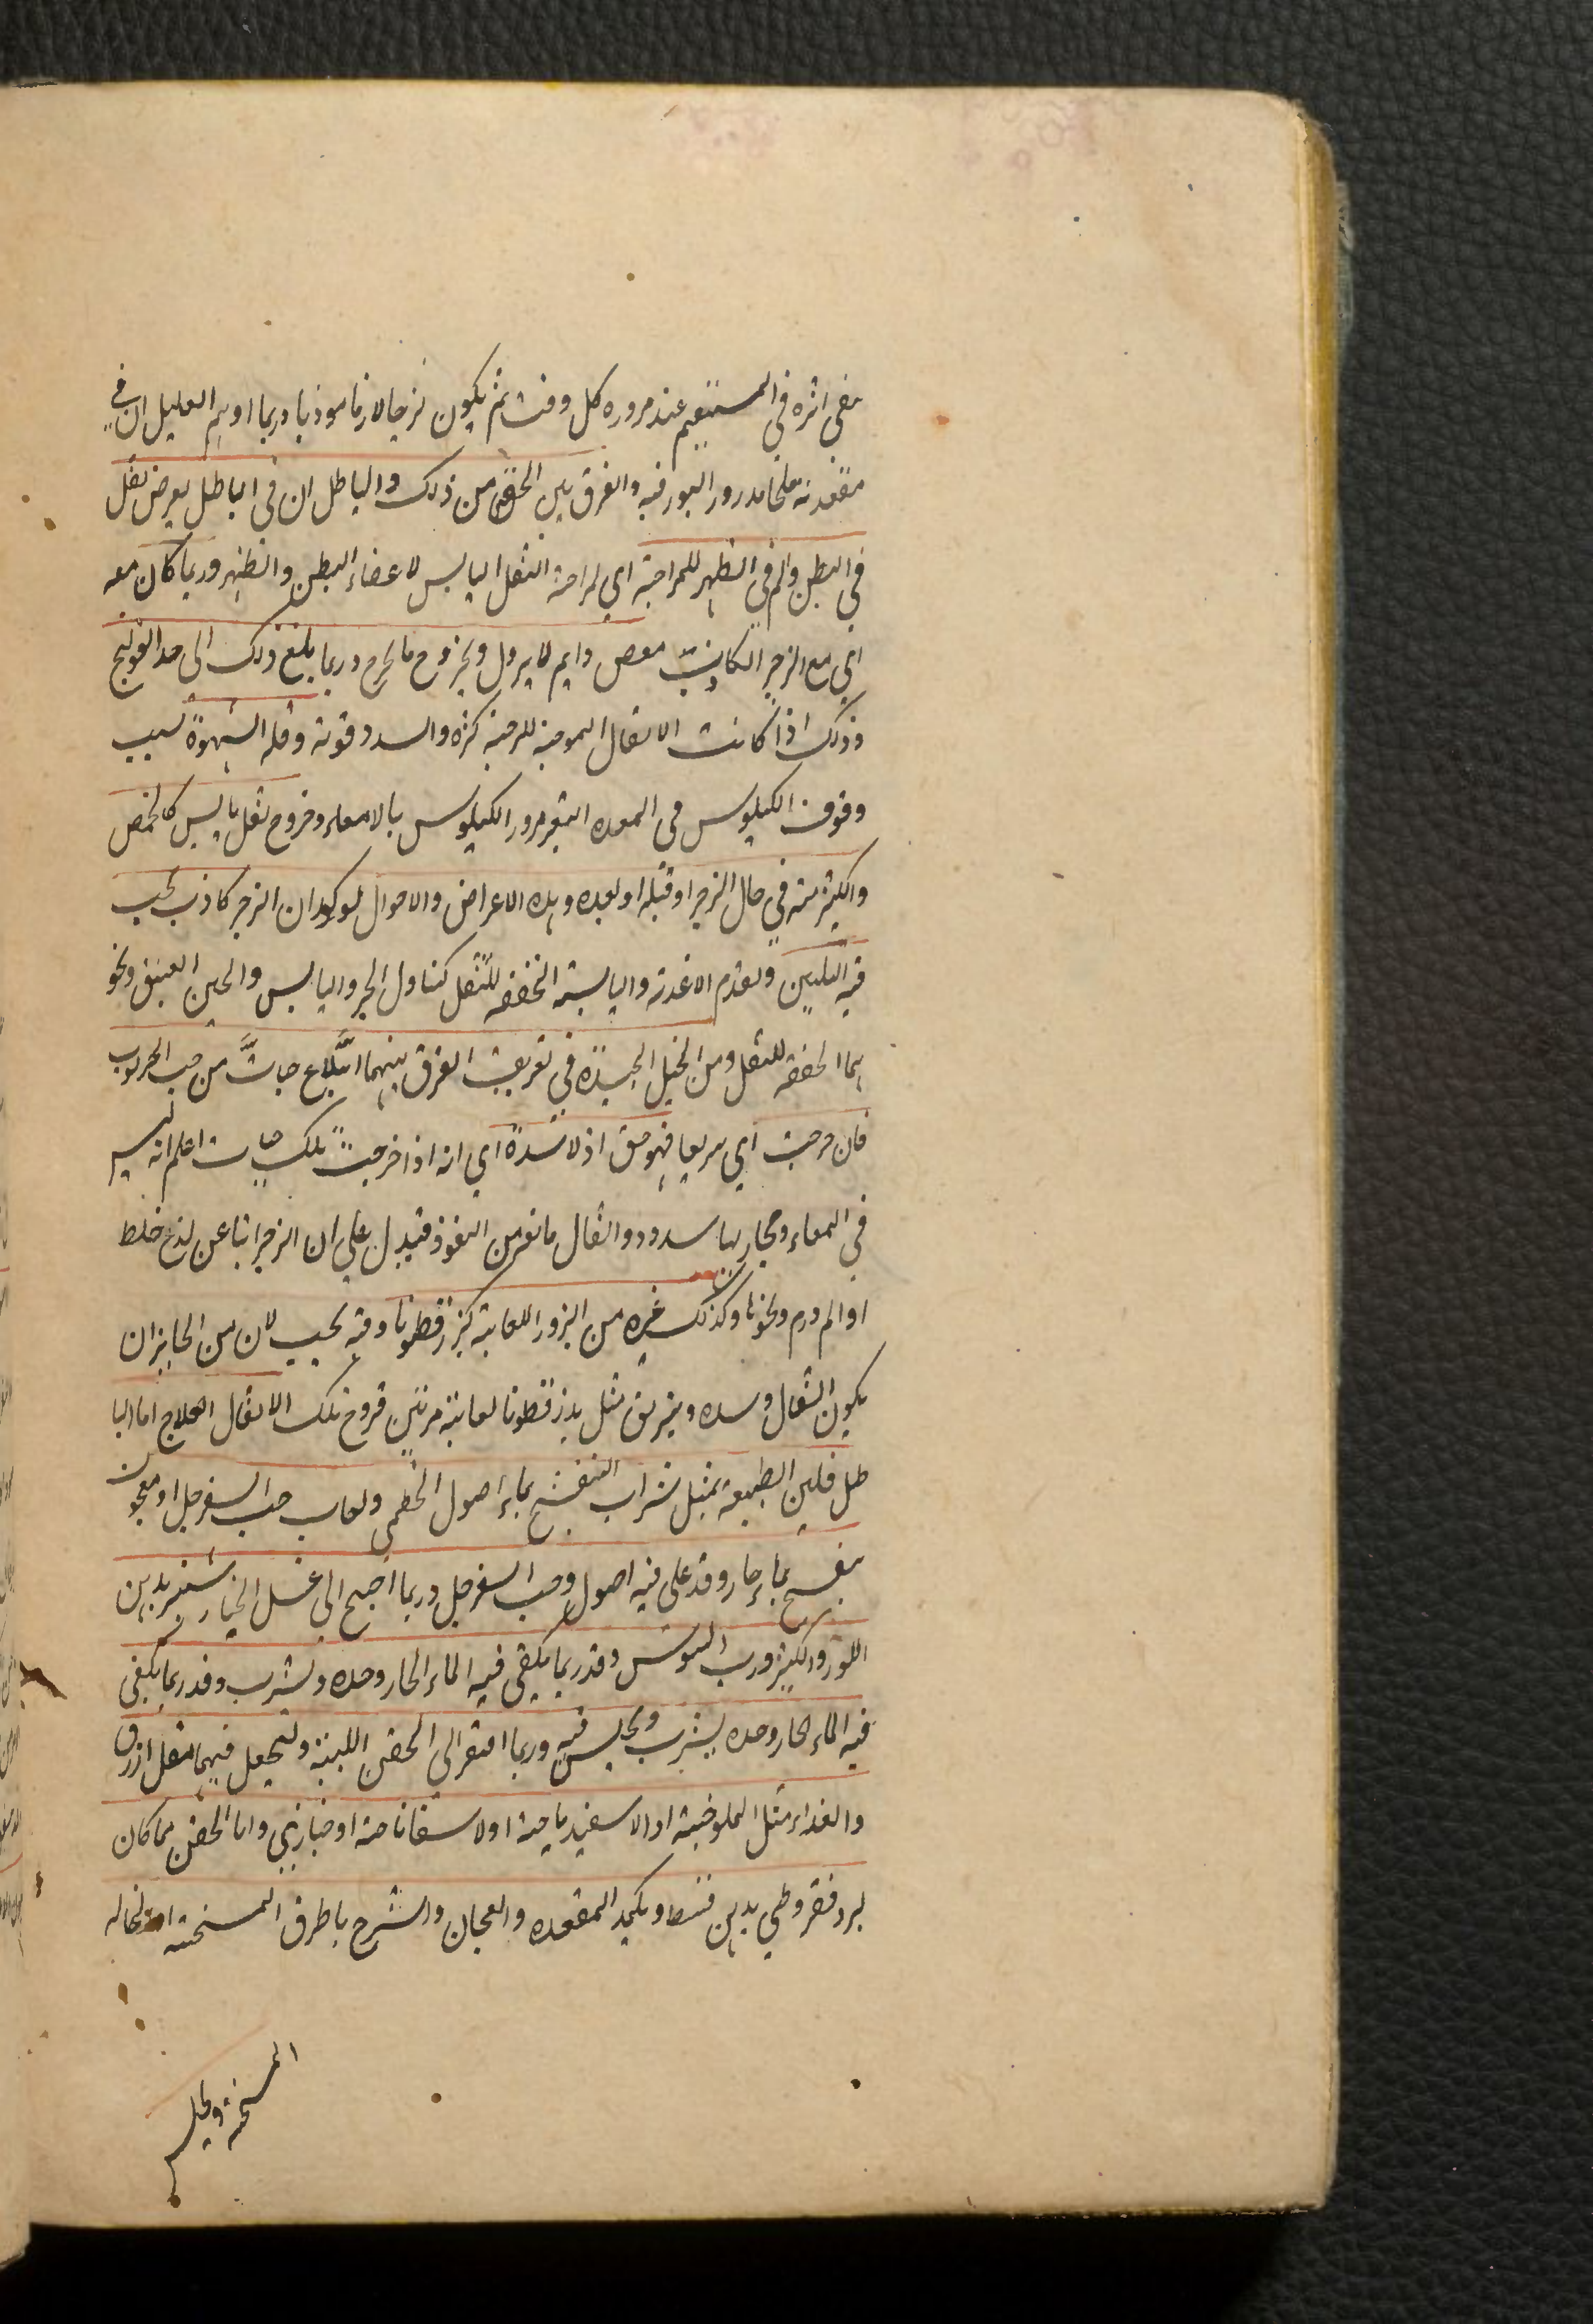 يبقى اثره في المستقيم عند مروره كل وقت ثم يكون لزجا لازقا موذيا وربما اوهم العليل ان في
مقعدته ملحا مدرورا لبورقيه والفرق بين الحق من ذلك والباطل ان في الباطل يعرض ثقل
في البطن والم في الظهر للمزاحمة اي لمزاحمة الثفل اليابس لاعضاء البطن والظهر وربما كان معه
اي مع الزحير الكاذب مغص دايم لا يزول وبخروج ما يخرج وربما يبلغ ذلك الى حد القولنج
وذلك اذا كانت الاثفال الموجبة للزحير كثرة والسدد قوية وقلة الشهوة لسبب
وقوف الكيلوس في المعدة لتعذر مرور الكيلوس بالامعاء وخروج ثفل يابس كالحمص
والكثر منه في حال الزحير او قبله او بعده وهذه الاعراض والاحوال توكد ان الزحير كاذب يجب
فيه التليين وتقدم الاغذية واليابسة المجففة للثفل كتناول الخبز واليابس والجبن العتيق ونحو
هما المجففة للثفل ومن الحيل الجيدة في تعريف الفرق بينهما ابتلاع حبات من حب الخرنوب
فان خرجت اي سريعا فهو حق اذ لا سدة اي انه اذا خرجت تلك حبات اعلم انه ليس
في المعاء ومجاريها سدود واثفال مانع من النفوذ فيدل على ان الزحير اتيا عن لذع خلط
او الم ورم ونحوها وكذلك غيره من البزور اللعابية كبزر قطونا وفيه بحيث لان من الجايز ان
يكون اثفال وسده ويزلق مثل بذر قطونا لعابية مرتين فروح تلك الاثفال العلاج اما البا
طل فلين الطبيعة بمثل شراب البنفسج بماء اصول الخطمي ولعاب حب السفرجل او معجون
بنفسج بماء حار وقد غلى فيه اصول وحب السفرجل وربما احتيج الى عسل الخيار شنبر بدهن
اللوز والكثير ورب السوس وقد ربما يكفي فيه الماء الحار وحده ويشرب وقد ربما يكفي
فيه الماء الحار وحده يشرب ويجلس فيه وربما افتقر الى الحقن اللينة ولتجعل فيهما ثقل ازرق
والغذاء مثل الملوخية او الاسفيدباجة او لاسفاناخية او خبازي واما الحق مما كان
لبرد فقيروطي بدهن قسط ويكمد المقعده والعجان والشرج باطرق المسخنة او نخاله
المسخنة ويجلس